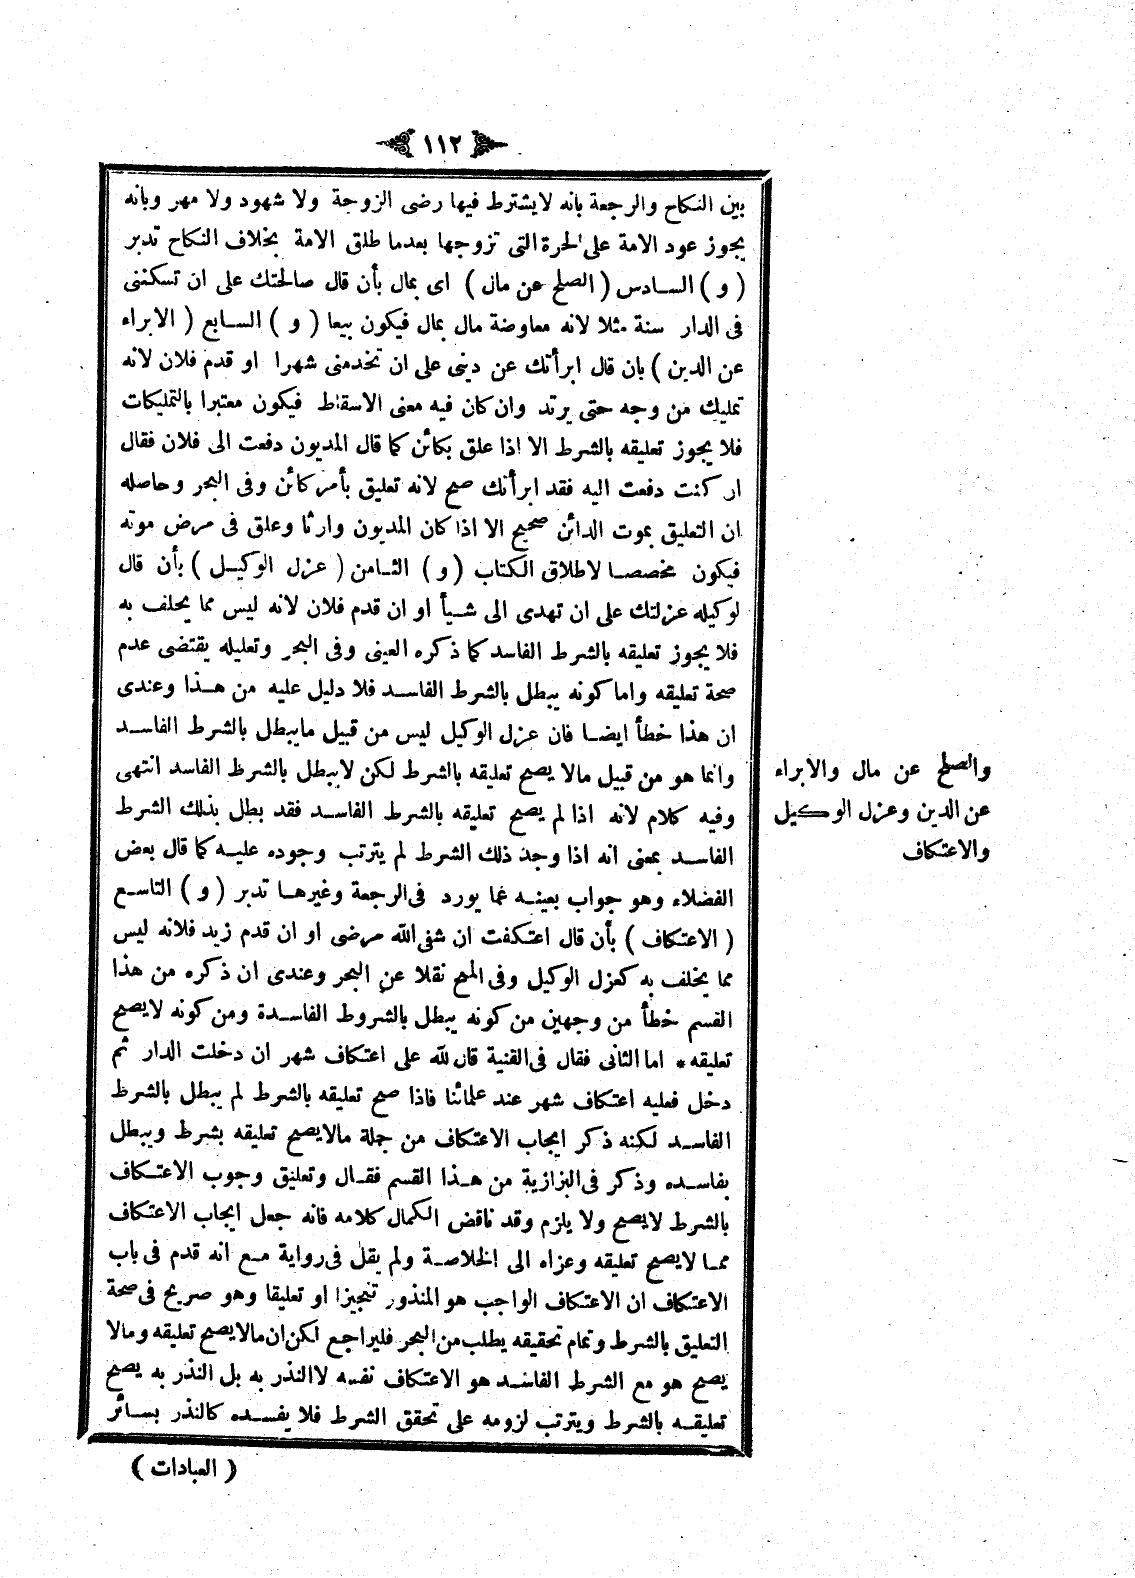 ١١٢
بين النكاح والرجعة بانه لايشترط فيها رضى الزوجة ولا شهود ولا مهر وبانه
يجوز عود الامة على الحرة التى تزوجها بعدما طلق الامة بخلاف النكاح تدبر
( و ) السادس ( الصلح عن مال ) اى بمال بأن قال صالحتك على ان تسكننى
فى الدار سنة مثلا لانه معاوضة مال بمال فيكون بيعا ( و ) السابع ( الابراء
عن الدين ) بان قال ابرأتك عن دينى على ان تخدمنى شهرا او قدم فلان لانه
تمليك من وجه حتى يرتد وان كان فيه معنى الاسقاط فيكون معتبرا بالتمليكات
فلا يجوز تعليقه بالشرط الا اذا علق بكائن كما قال المديون دفعت الى فلان فقال
ان كنت دفعت اليه فقد ابرأتك صح لانه تعليق بأمر كائن وفى البحر وحاصله
ان التعليق بموت الدائن صحيح الا اذا كان المديون وارثا وعلق فى مرض موته
فيكون مخصصا لاطلاق الكتاب ( و ) الثامن ( عزل الوكيل ) بأن قال
لوكيله عزلتك على ان تهدى الى شيأ او ان قدم فلان لانه ليس مما يحلف به
فلا يجوز تعليقه بالشرط الفاسد كما ذكره العينى وفى البحر وتعليله يقتضى عدم
صحة تعليقه واما كونه يبطل بالشرط الفاسد فلا دليل عليه من هذا وعندى
ان هذا خطأ ايضا فان عزل الوكيل ليس من قبيل مايبطل بالشرط الفاسد
وانما هو من قبيل مالا يصح تعليقه بالشرط لكن لايبطل بالشرط الفاسد انتهى
وفيه كلام لانه اذا لم يصح تعليقه بالشرط الفاسد فقد بطل بذلك الشرط
الفاسد بمعنى انه اذا وجد ذلك الشرط لم يترتب وجوده عليه كما قال بعض
الفضلاء وهو جواب بعينه عما يورد فى الرجعة وغيرها تدبر ( و ) التاسع
( الاعتكاف ) بأن قال اعتكفت ان شفى الله مرضى او ان قدم زيد فلانه ليس
مما يحلف به كعزل الوكيل وفى المنح نقلا عن البحر وعندى ان ذكره من هذا
القسم خطأ من وجهين من كونه يبطل بالشروط الفاسدة ومن كونه لايصح
تعليقه * اما الثانى فقال فى القنية قال لله على اعتكاف شهر ان دخلت الدار ثم
دخل فعليه اعتكاف شهر عند علمائنا فاذا صح تعليقه بالشرط لم يبطل بالشرط
الفاسد لكنه ذكر ايجاب الاعتكاف من جملة مالايصح تعليقه بشرط ويبطل
بفاسده وذكر فى البزازية من هذا القسم فقال وتعليق وجوب الاعتكاف
بالشرط لايصح ولا يلزم وقد ناقض الكمال كلامه فانه جعل ايجاب الاعتكاف
مما لايصح تعليقه وعزاه الى الخلاصة ولم يقل فى رواية مع انه قدم فى باب
الاعتكاف ان الاعتكاف الواجب هو المنذور تنجيزا او تعليقا وهو صريح فى صحة
التعليق بالشرط وتمام تحقيقه يطلب من البحر فليراجع لكن ان مالايصح تعليقه ومالا
يصح هو مع الشرط الفاسد هو الاعتكاف نفسه لاالنذر به بل النذر به يصح
تعليقه بالشرط ويترتب لزومه على تحقق الشرط فلا يفسده كالنذر بسائر
والصلح عن مال والابراء
عن الدين وعزل الوكيل
والاعتكاف
( العبادات )